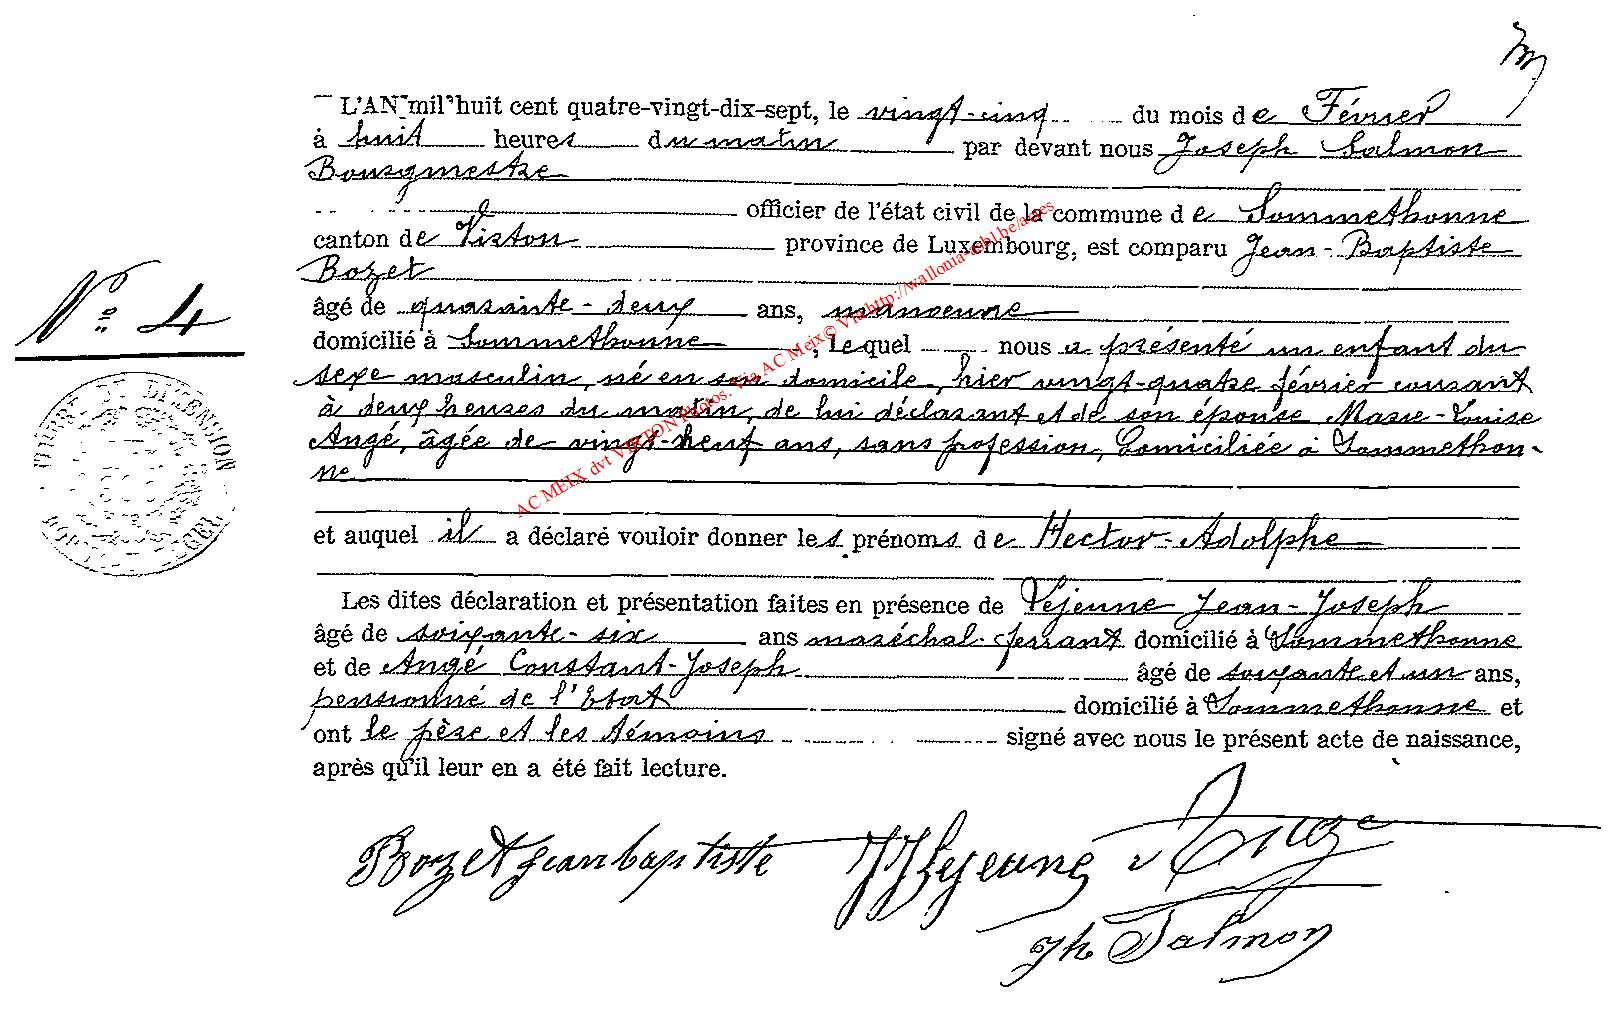 L'AN mil huit cent quatre-vingt-dix-sept, le vingt-cinq du mois de Février
à huit heures du matin par devant nous Joseph Salmon
Bourgmestre
officier de l'état civil de la commune de Sommethonne
canton de Virton province de Luxembourg, est comparu Jean-Baptiste
Bozet
âgé de quarante-deux ans, manoeuvre
domicilié à Sommethonne, lequel nous a présenté un enfant du
N° 4
sexe masculin, né en son domicile, hier vingt-quatre février courant
à deux heures du matin, de lui déclarant et de son épouse Marie-Louise
Angé, âgée de vingt-neuf ans, sans profession, Domiciliée à Sommethon-
ne
et auquel il a déclaré vouloir donner les prénoms de Hector-Adolphe
Les dites déclaration et présentation faites en présence de Lejeune Jean-Joseph
âgé de soixante-six ans maréchal-ferrant domicilié à Sommethonne
et de Angé Constant-Joseph âgé de soixante et un ans,
pensionné de l'Etat domicilié à Sommethonne et
ont le père et les témoins signé avec nous le présent acte de naissance,
après qu'il leur en a été fait lecture.
Bozet jean baptiste JJLejeune Angé
Jh Salmon
AC MEIX dvt VIRTON Photos. Via AC Meix© Via http://wallonia-asbl.be/actes